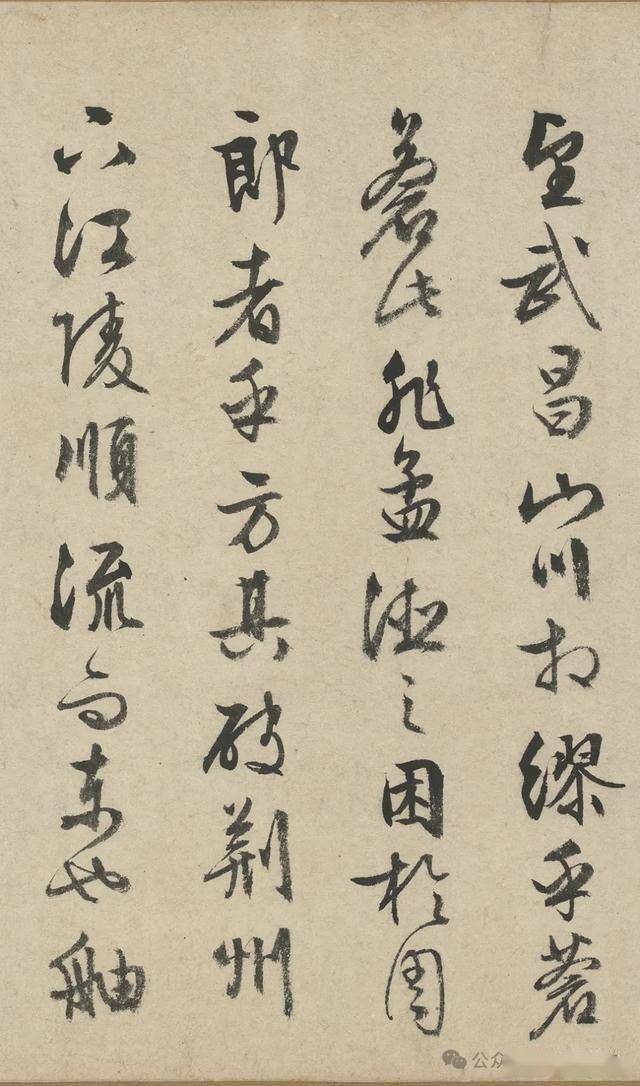 望武昌山川相繆乎蒼
蒼此非孟德之困於周
郎者乎方其破荊州
下江陵順流而東也舳
公众